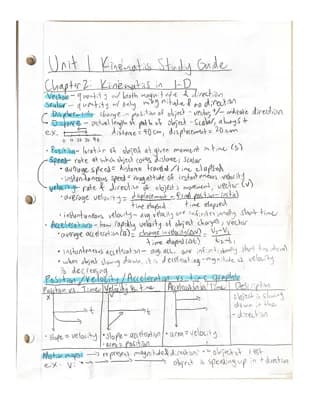 Unit 1 Kinematics Study Guide
Chapter 2: Kinematics in 1-D
Vector - quantity w/ both magnitude & direction
Scalar - quantity w/ only magnitude & no direction
Displacement - change in position of object - vector, +/- indicate direction
Distance - actual length of path of object - scalar, always +
ex. distance = 90cm, displacement = 20cm
• Position - location of object at given moment in time (s)
Speed - rate at which object covers distance; scalar
• average speed = distance traveled / time elapsed
• instantaneous speed = magnitude of instantaneous velocity
velocity - rate & direction of object's movement, vector (v)
• average velocity = displacement = final position - initial
time elapsed time elapsed
• instantaneous velocity - avg velocity over infinitesimally short time
• Acceleration - how rapidly velocity of object changes, vector
• average acceleration (a) = change in velocity (Δv) = v₂-v₁
time elapsed (Δt) t₂-t₁
• instantaneous acceleration - avg acc. over infinitesimally short time interval
• when object slowing down, it is decelerating - magnitude of velocity
is decreasing
Position / Velocity / Acceleration vs. time graphs
Position vs. Time Velocity vs. time Acceleration vs. Time Description
x t t
object is slowing
down in the
- direction
• slope = velocity • slope = acceleration • area = velocity
• area = position
Motion maps → represent magnitude & direction • = object at rest
ex. v: object is speeding up in + direction